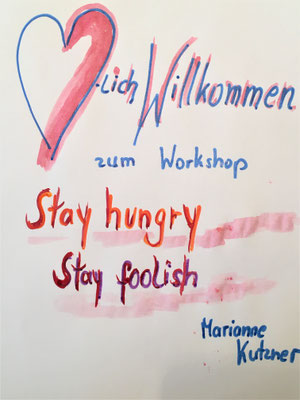 -lich Willkommen
zum Workshop
Stay hungry
Stay foolish
Marianne
Kutzner